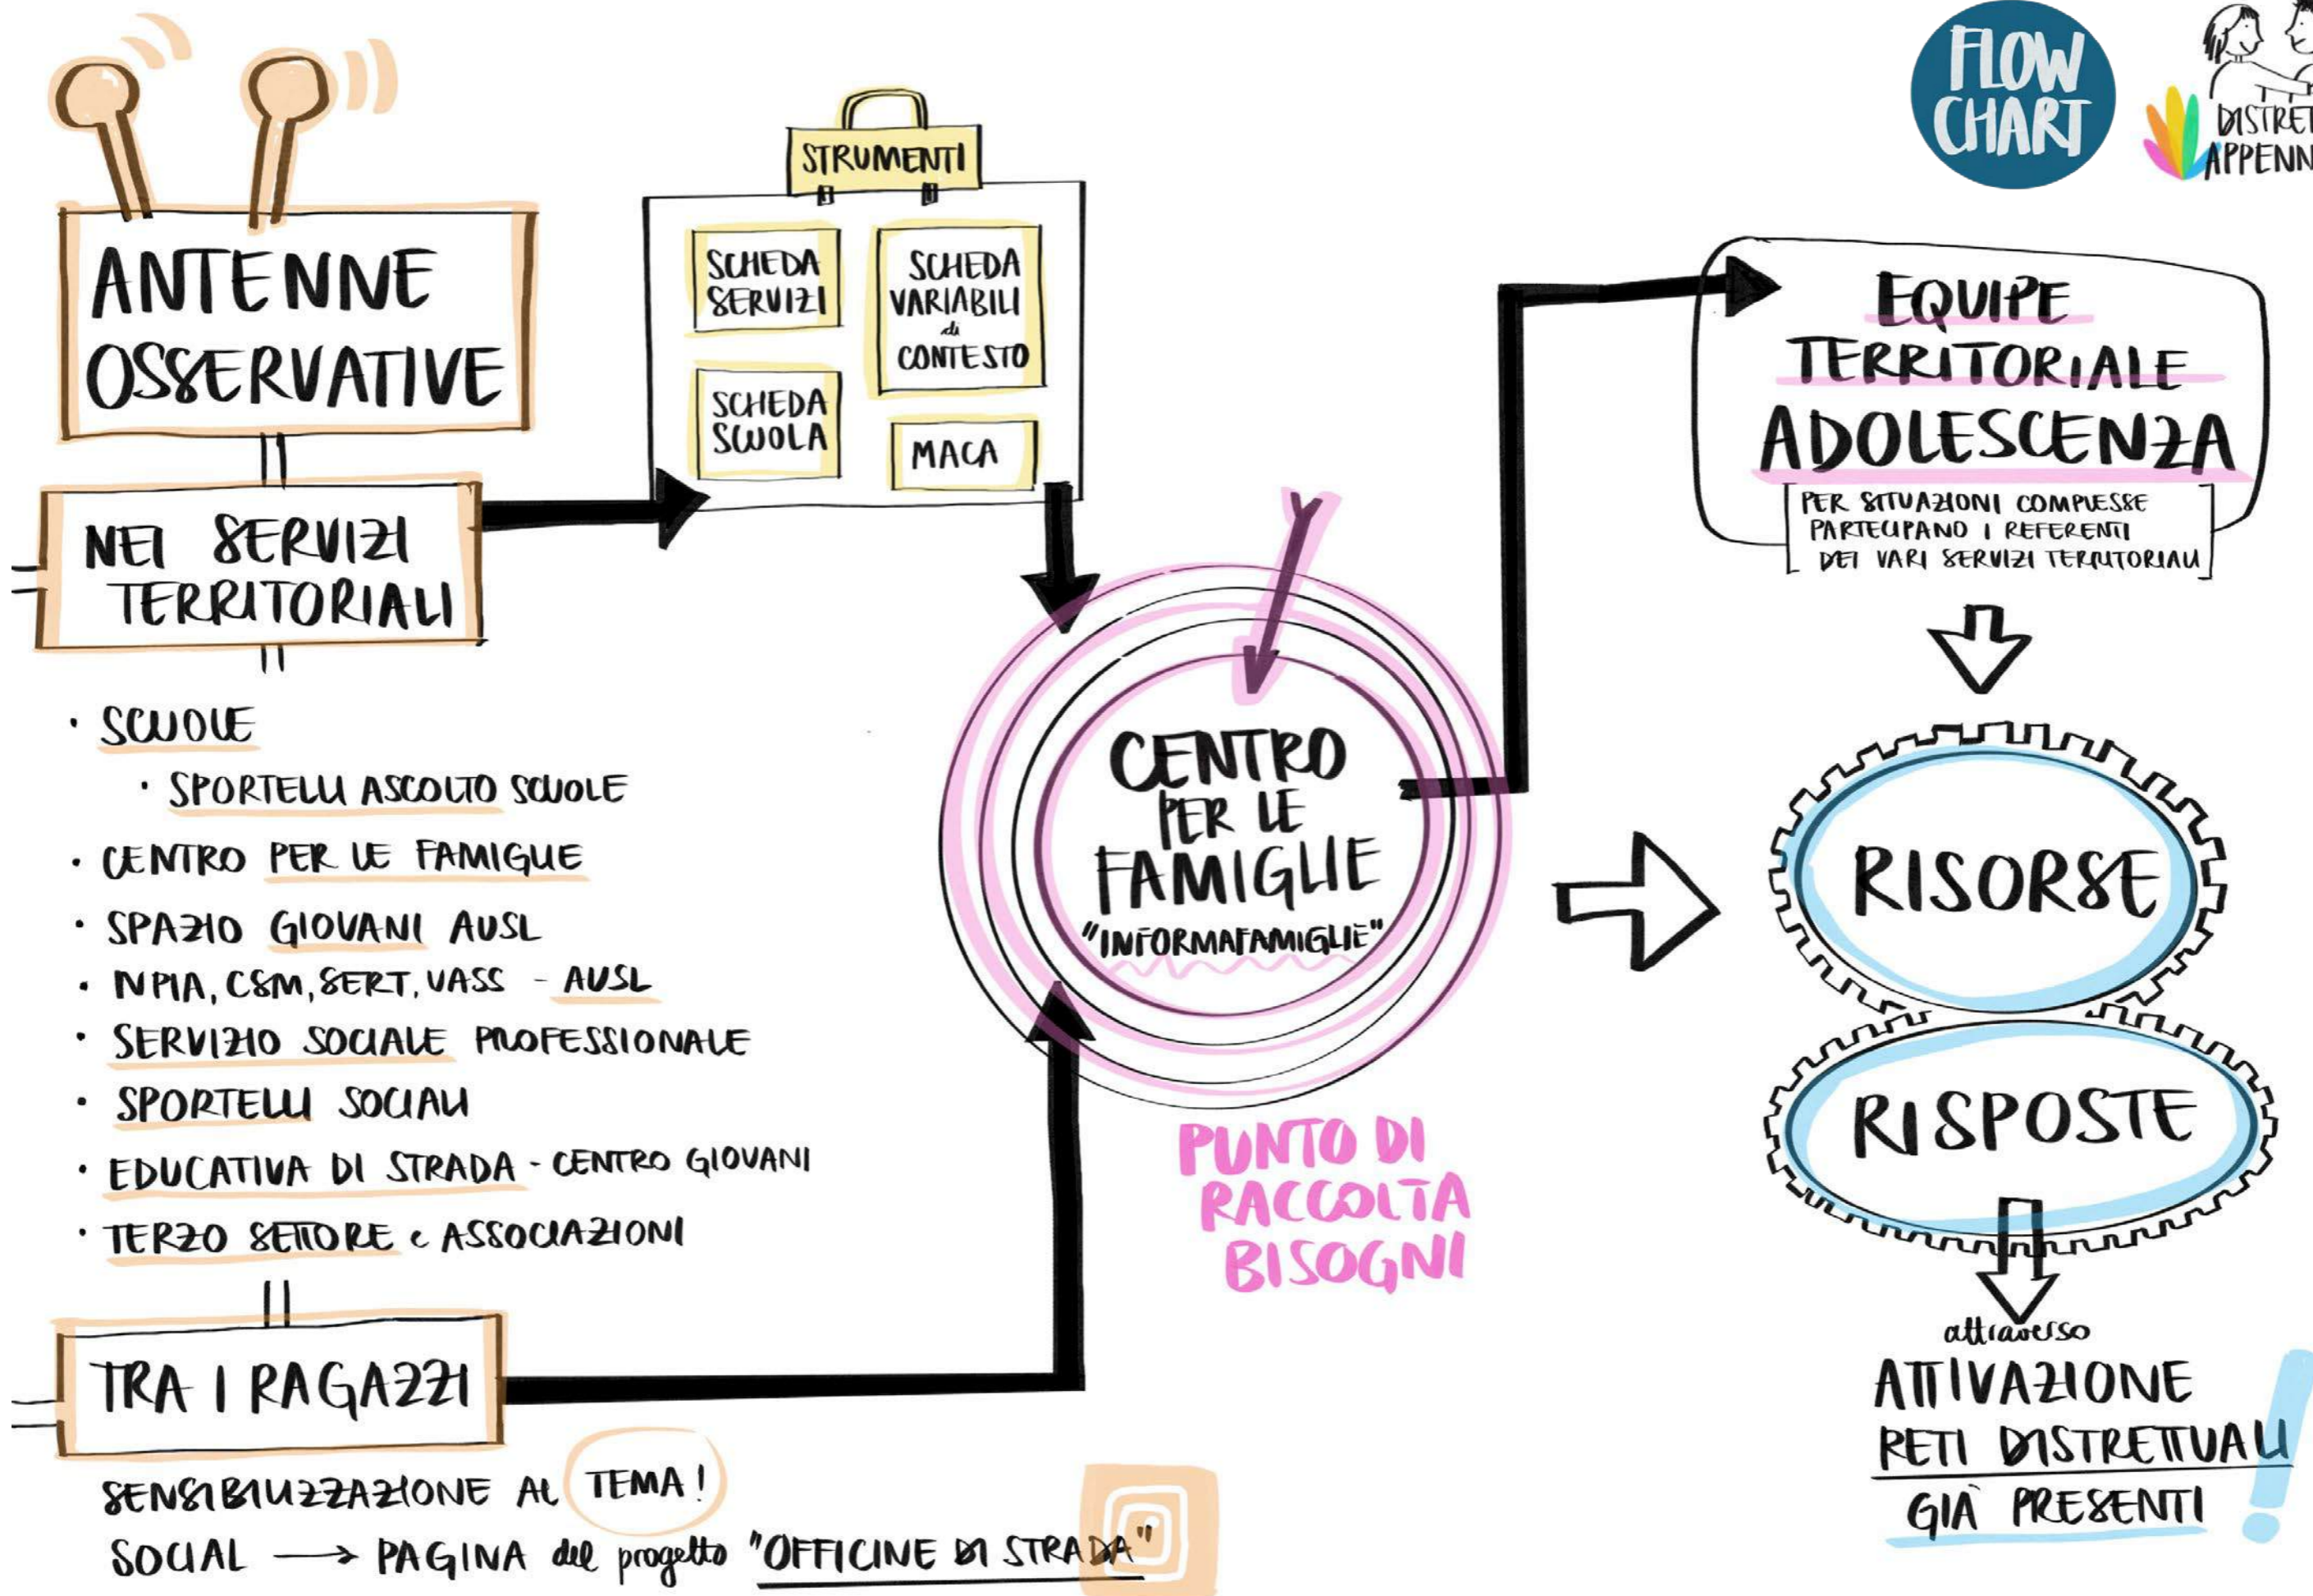 FLOW
CHART
ANTENNE
OSSERVATIVE
NEI SERVIZI
TERRITORIALI
· SCUOLE
· SPORTELLI ASCOLTO SCUOLE
· CENTRO PER LE FAMIGLIE
· SPAZIO GIOVANI AUSL
· NPIA, CSM, SERT, UASS - AUSL
· SERVIZIO SOCIALE PROFESSIONALE
· SPORTELLI SOCIALI
· EDUCATIVA DI STRADA - CENTRO GIOVANI
· TERZO SETTORE e ASSOCIAZIONI
TRA I RAGAZZI
SENSIBILIZZAZIONE AL TEMA!
SOCIAL → PAGINA del progetto "OFFICINE DI STRADA"
STRUMENTI
SCHEDA
SERVIZI
SCHEDA
VARIABILI
di
CONTESTO
SCHEDA
SCUOLA
MACA
CENTRO
PER LE
FAMIGLIE
"INFORMAFAMIGLIE"
PUNTO DI
RACCOLTA
BISOGNI
EQUIPE
TERRITORIALE
ADOLESCENZA
PER SITUAZIONI COMPLESSE
PARTECIPANO I REFERENTI
DEI VARI SERVIZI TERRITORIALI
RISORSE
RISPOSTE
attraverso
ATTIVAZIONE
RETI DISTRETTUALI
GIÀ PRESENTI